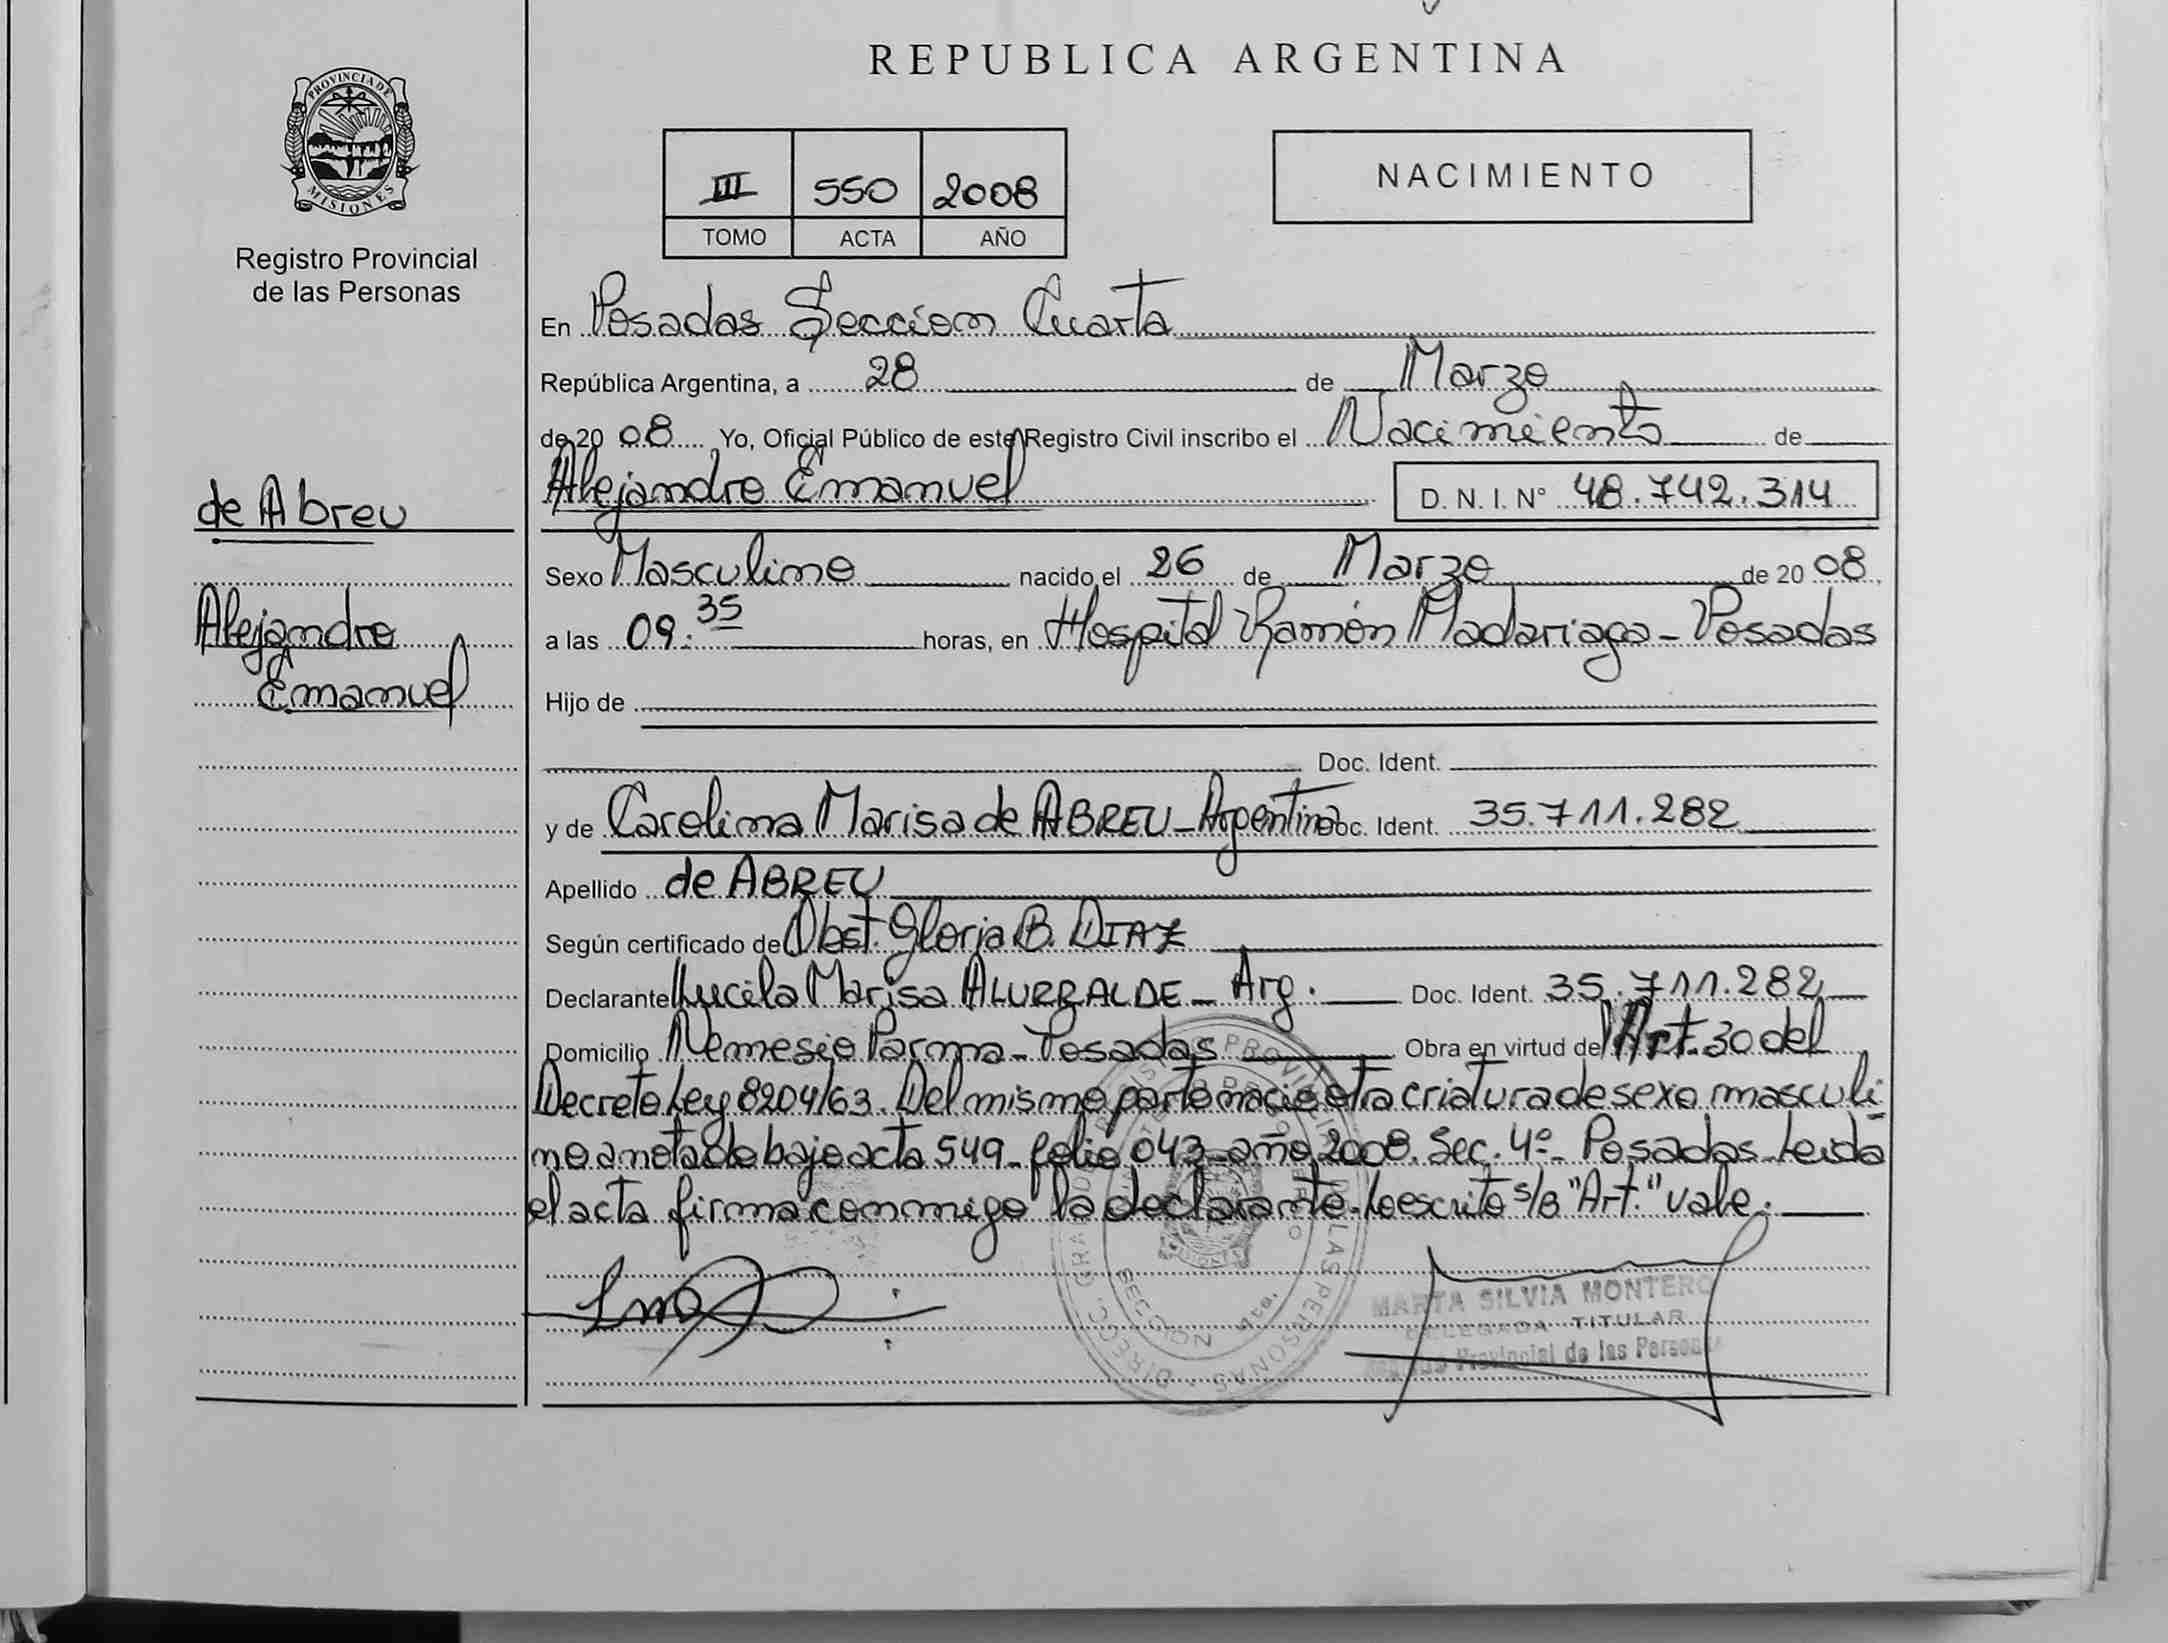 REPUBLICA ARGENTINA
PROVINCIA DE MISIONES
Registro Provincial
de las Personas
III 550 2008
TOMO ACTA AÑO
NACIMIENTO
En Posadas Sección Cuarta
República Argentina, a 28 de Marzo
de 20 08 Yo, Oficial Público de este Registro Civil inscribo el Nacimiento de
Alejandro Emanuel D. N. I. N° 48.742.314
de Abreu
Alejandro
Emanuel
Sexo Masculino nacido el 26 de Marzo de 20 08
a las 09:35 horas, en Hospital Ramón Madariaga - Posadas
Hijo de
Doc. Ident.
y de Carolina Marisa de ABREU - Argentina Doc. Ident. 35.711.282
Apellido de ABREU
Según certificado de Obst. Gloria B. DIAZ
Declarante Lucila Marisa ALURRALDE - Arg. Doc. Ident. 35.711.282
Domicilio Nemesio Parma - Posadas Obra en virtud del Art. 30 del
Decreto Ley 8204/63. Del mismo parto nacio otra criatura de sexo masculi-
no anotado bajo acta 549 - folio 043 - año 2008. Sec. 4º - Posadas - Leida
el acta firma conmigo la declarante. Lo escrito s/b "Art." vale.
SECCION 4ta.
MARTA SILVIA MONTERO
DELEGADA TITULAR
Registro Provincial de las Personas